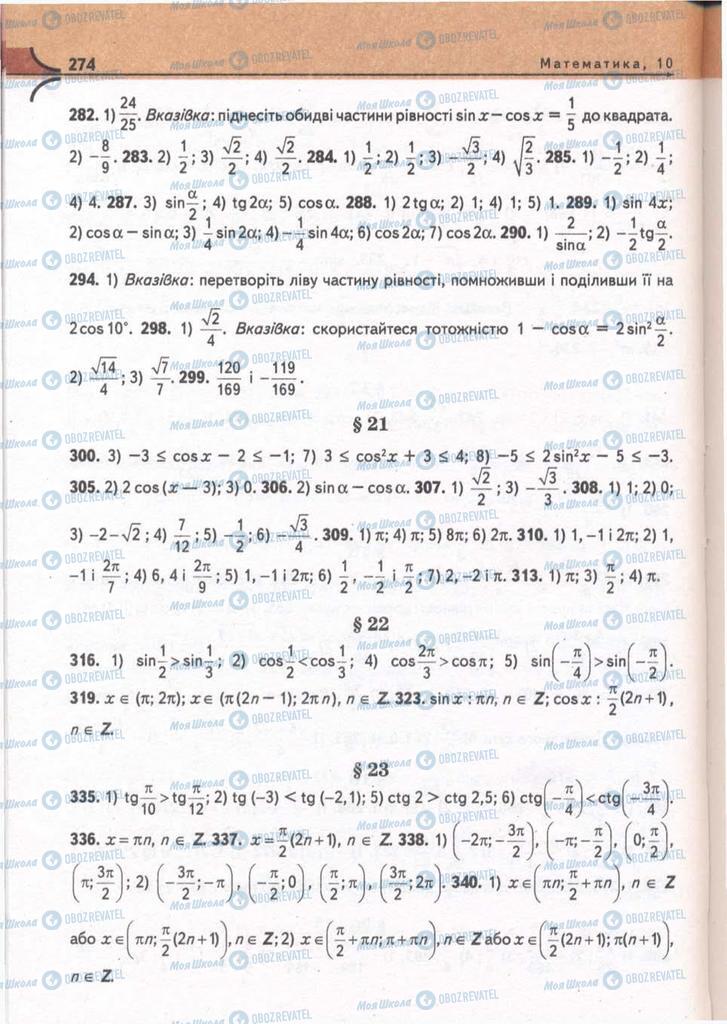 274 Математика, 10
282. 1) 24/25. Вказівка: піднесіть обидві частини рівності sin x − cos x = 1/5 до квадрата.
2) −8/9. 283. 2) 1/2; 3) √2/2; 4) √2/2. 284. 1) 1/2; 2) 1/2; 3) −√3/2; 4) √(2/3). 285. 1) −1/2; 2) 1/4;
4) 4. 287. 3) sin α/2; 4) tg 2α; 5) cos α. 288. 1) 2 tg α; 2) 1; 4) 1; 5) 1. 289. 1) sin 4x;
2) cos α − sin α; 3) 1/4 sin 2α; 4) −1/4 sin 4α; 6) cos 2α; 7) cos 2α. 290. 1) 2/sin α; 2) −1/2 tg α/2.
294. 1) Вказівка: перетворіть ліву частину рівності, помноживши і поділивши її на
2cos 10°. 298. 1) √2/4. Вказівка: скористайтеся тотожністю 1 − cos α = 2 sin² α/2.
2) √14/4; 3) √7/7. 299. 120/169 і −119/169.
§ 21
300. 3) −3 ≤ cos x − 2 ≤ −1; 7) 3 ≤ cos²x + 3 ≤ 4; 8) −5 ≤ 2 sin²x − 5 ≤ −3.
305. 2) 2 cos (x − 3); 3) 0. 306. 2) sin α − cos α. 307. 1) √2/2; 3) −√3/3. 308. 1) 1; 2) 0;
3) −2−√2; 4) 7/12; 5) −1/2; 6) √3/4. 309. 1) π; 4) π; 5) 8π; 6) 2π. 310. 1) 1, −1 і 2π; 2) 1,
−1 і 2π/7; 4) 6, 4 і 2π/9; 5) 1, −1 і 2π; 6) 1/2, −1/2 і π/2; 7) 2, −2 і π. 313. 1) π; 3) π/2; 4) π.
§ 22
316. 1) sin 1/2 > sin 1/3; 2) cos 1/2 < cos 1/3; 4) cos 2π/3 > cos π; 5) sin(−π/4) > sin(−π/2).
319. x ∈ (π; 2π); x ∈ (π(2n − 1); 2πn), n ∈ Z. 323. sin x : πn, n ∈ Z; cos x : π/2(2n+1),
n ∈ Z.
§ 23
335. 1) tg π/10 > tg π/12; 2) tg (−3) < tg (−2,1); 5) ctg 2 > ctg 2,5; 6) ctg(−π/4) < ctg(−3π/4).
336. x = πn, n ∈ Z. 337. x = π/2(2n+1), n ∈ Z. 338. 1) (−2π; −3π/2), (−π; −π/2), (0; π/2),
(π; 3π/2); 2) (−3π/2; −π), (−π/2; 0), (π/2; π), (3π/2; 2π). 340. 1) x ∈ (πn; π/2 + πn), n ∈ Z
або x ∈ (πn; π/2(2n+1)), n ∈ Z; 2) x ∈ (π/2 + πn; π + πn), n ∈ Z або x ∈ (π/2(2n+1); π(n+1)),
n ∈ Z.